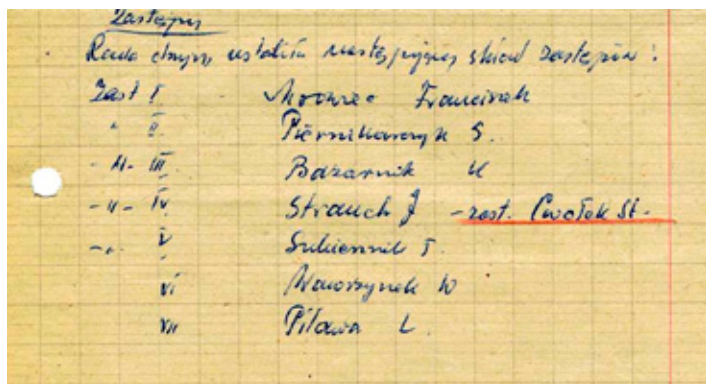 Zastępy
Rada drużyny ustaliła następujący skład zastępów :
Zast I Franciszek
" II Piernikarczyk S.
- " - III Bazarnik K
- " - IV Strauch J - zast. Cwołek St -
- " - V Sukiennik T.
VI Wawrzynek W
VII Pilawa L.